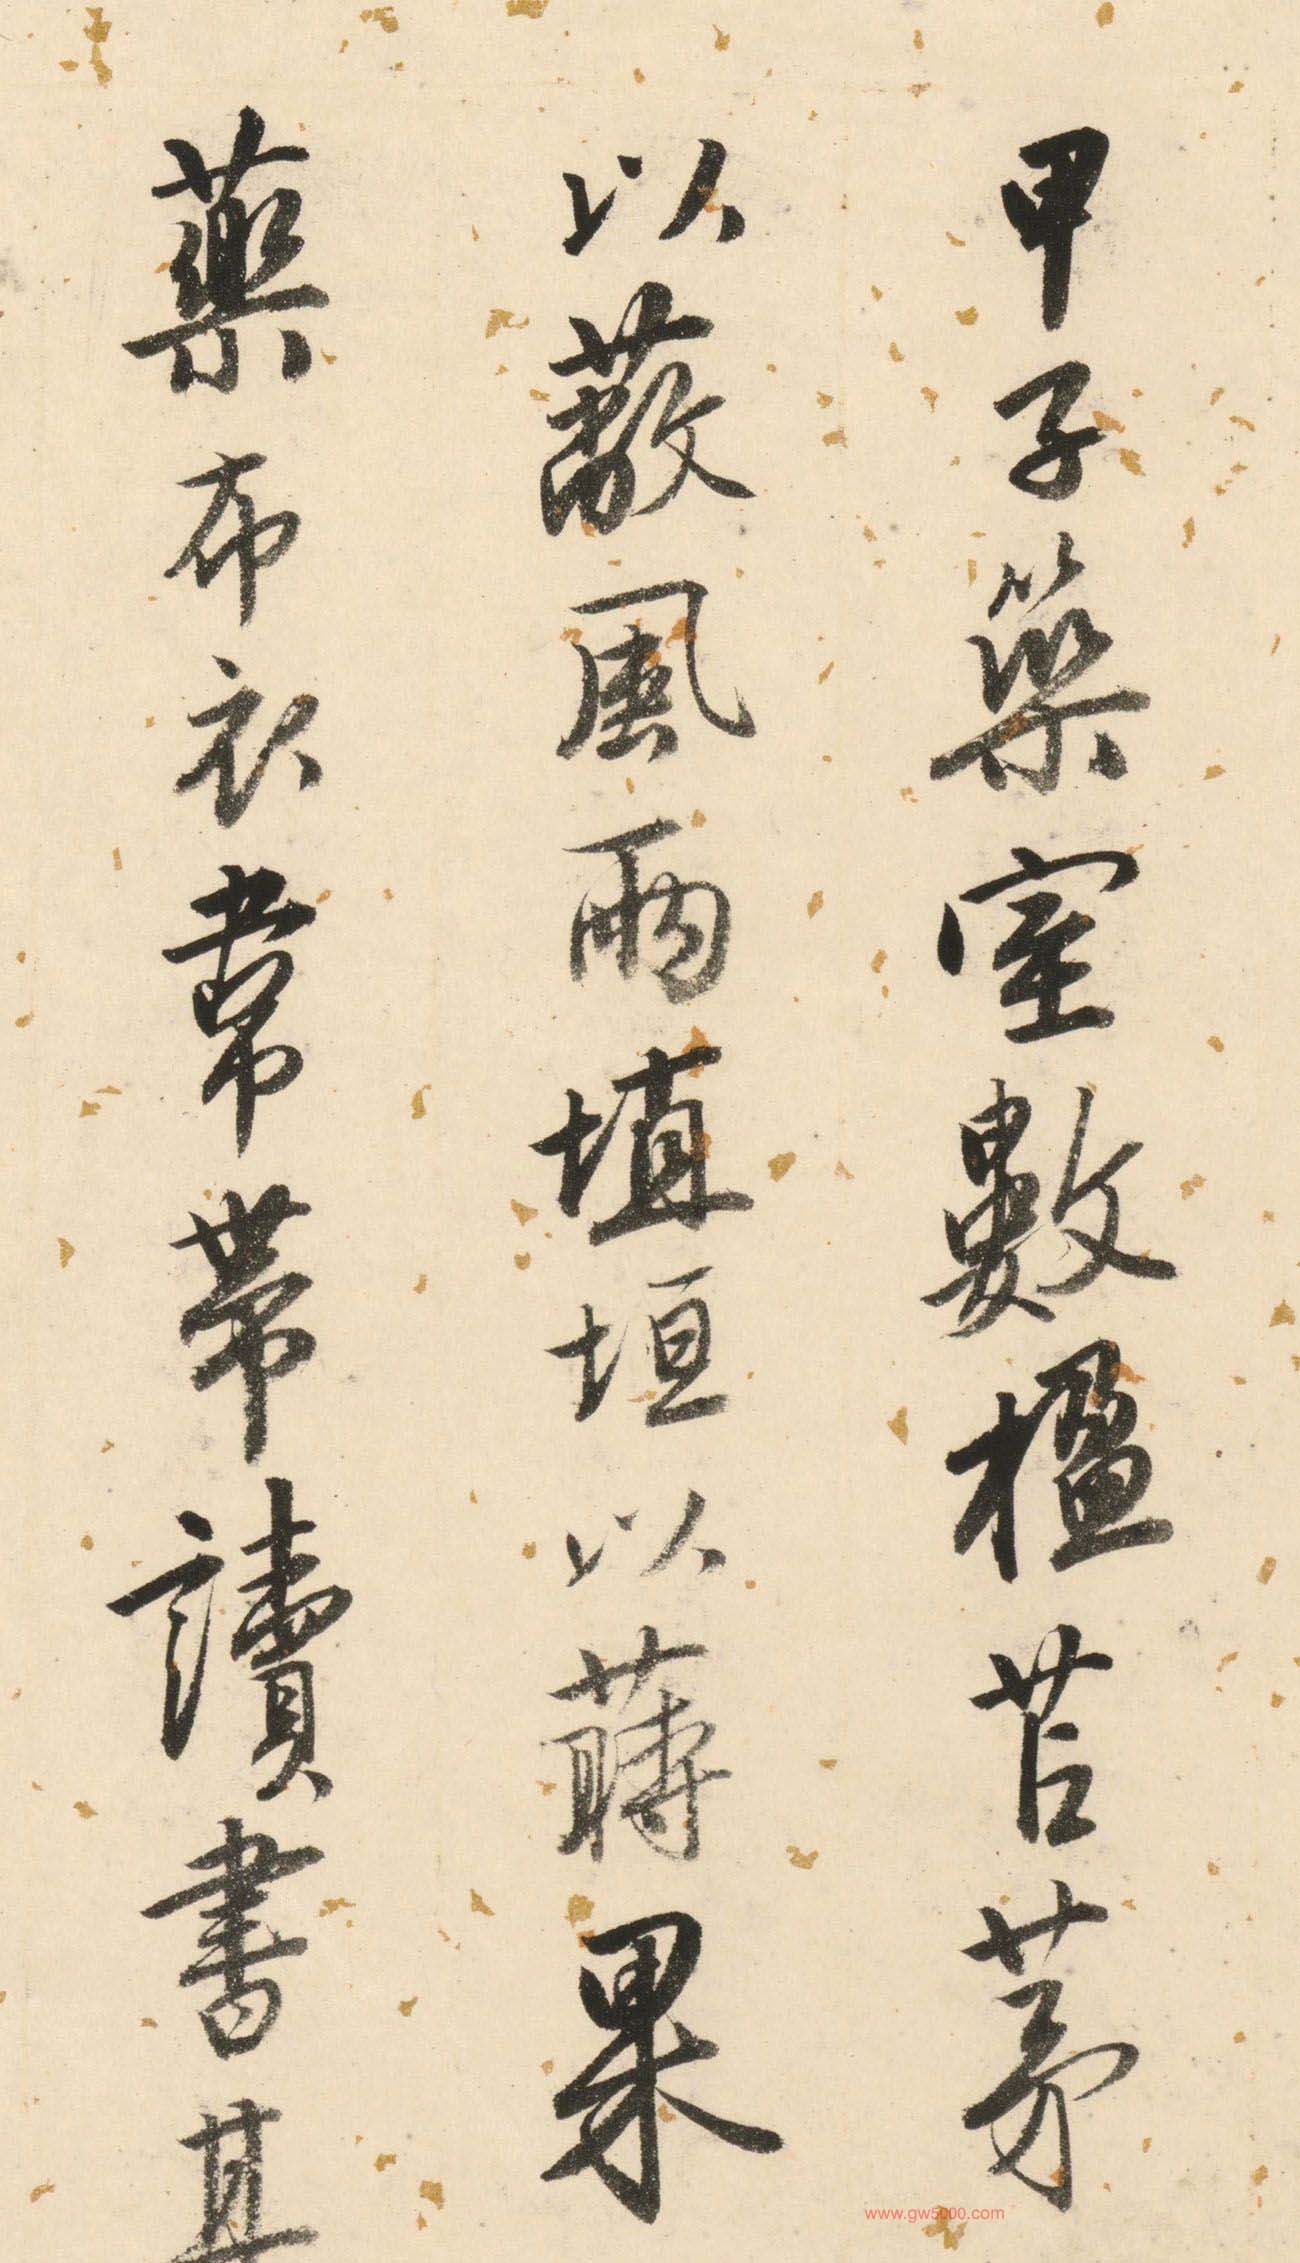 甲子築室數楹苫茅
以蔽風雨埴垣以蒔果
藥布衣韋帶讀書其
www.gw5000.com